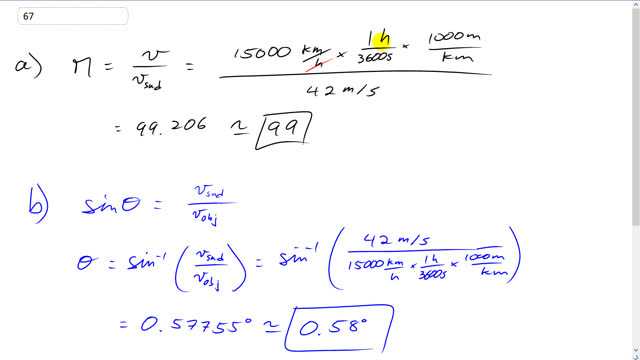 67
a) M = v / v_snd = (15000 km/h × 1h/3600s × 1000m/km) / 42 m/s
= 99.206 ≃ 99
b) sinθ = v_snd / v_obj
θ = sin⁻¹ (v_snd / v_obj) = sin⁻¹ (42 m/s / (15000 km/h × 1h/3600s × 1000m/km))
= 0.57755° ≃ 0.58°